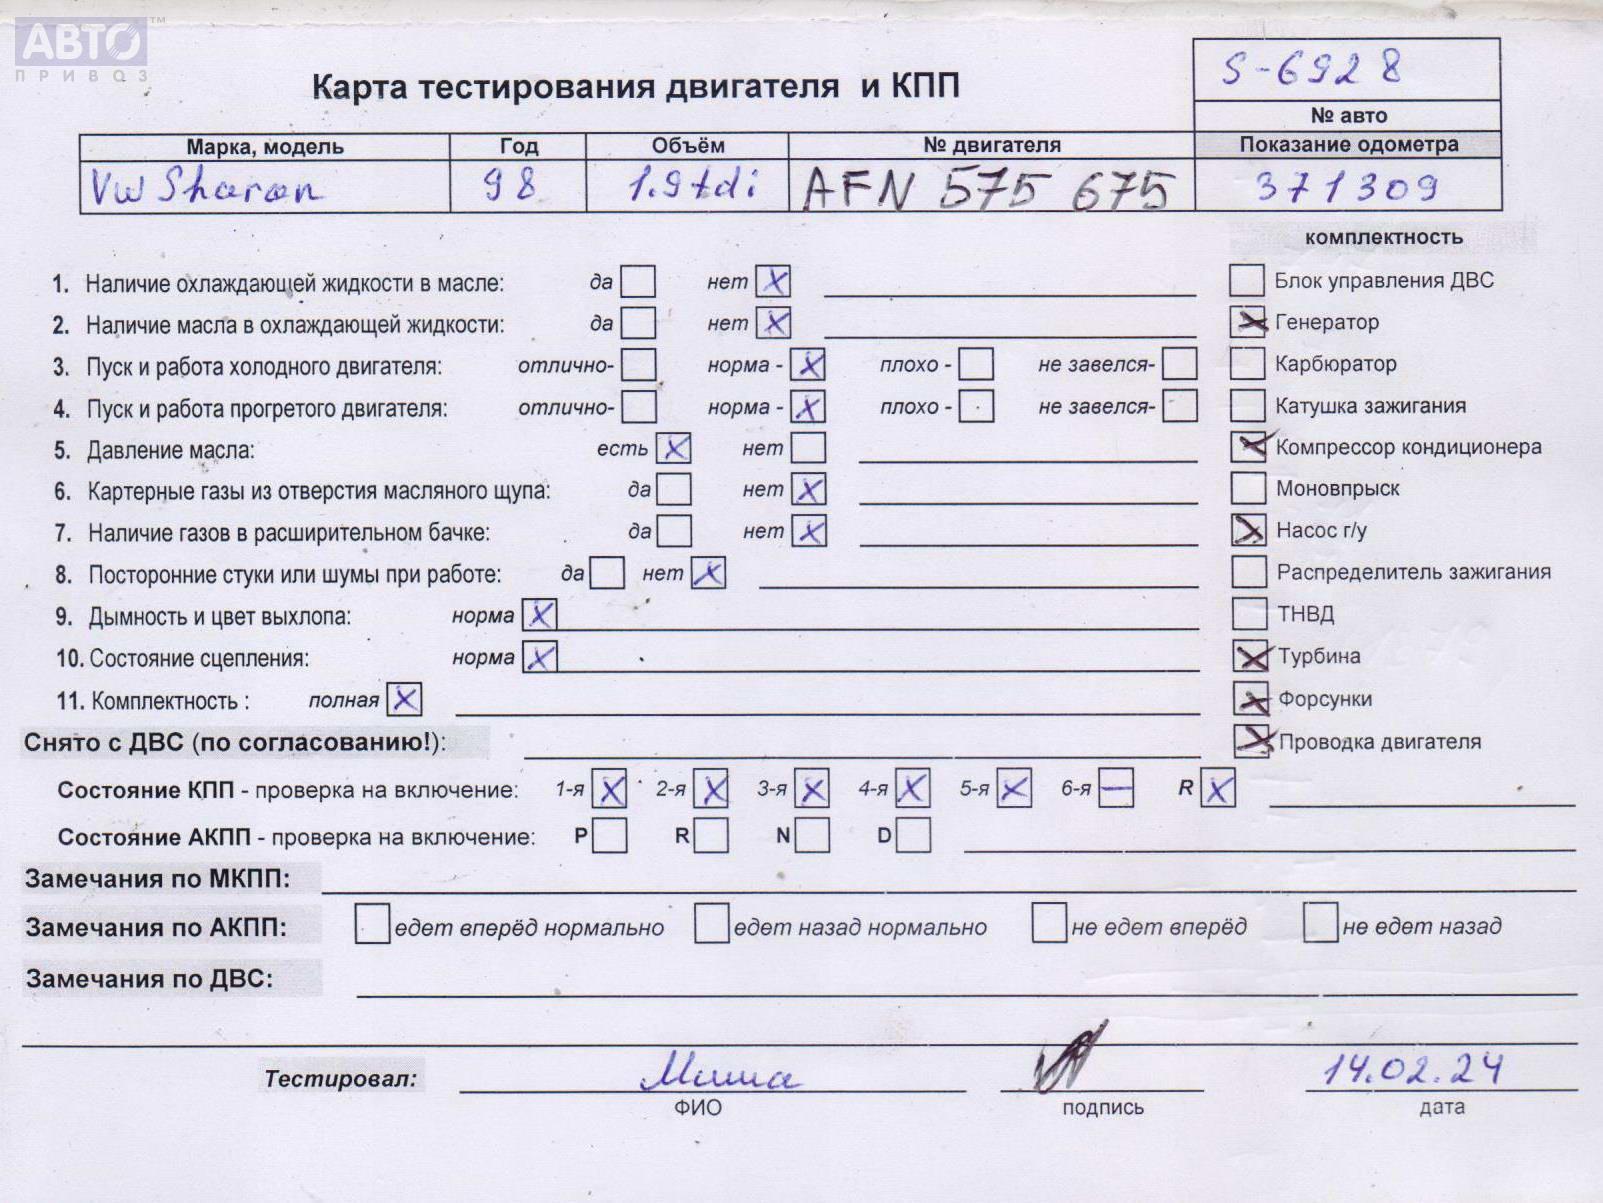 АВТО™
ПРИВОЗ
Карта тестирования двигателя и КПП
S-6928
№ авто
Марка, модель Год Объём № двигателя Показание одометра
VW Sharan 98 1.9 tdi AFN 575 675 371309
комплектность
1. Наличие охлаждающей жидкости в масле: да нет X Блок управления ДВС
2. Наличие масла в охлаждающей жидкости: да нет X X Генератор
3. Пуск и работа холодного двигателя: отлично- норма - X плохо - не завелся- Карбюратор
4. Пуск и работа прогретого двигателя: отлично- норма - X плохо - не завелся- Катушка зажигания
5. Давление масла: есть X нет X Компрессор кондиционера
6. Картерные газы из отверстия масляного щупа: да нет X Моновпрыск
7. Наличие газов в расширительном бачке: да нет X X Насос г/у
8. Посторонние стуки или шумы при работе: да нет X Распределитель зажигания
9. Дымность и цвет выхлопа: норма X ТНВД
10. Состояние сцепления: норма X X Турбина
11. Комплектность : полная X X Форсунки
Снято с ДВС (по согласованию!): X Проводка двигателя
Состояние КПП - проверка на включение: 1-я X 2-я X 3-я X 4-я X 5-я X 6-я — R X
Состояние АКПП - проверка на включение: P R N D
Замечания по МКПП:
Замечания по АКПП: едет вперёд нормально едет назад нормально не едет вперёд не едет назад
Замечания по ДВС:
Тестировал: Миша 14.02.24
ФИО подпись дата